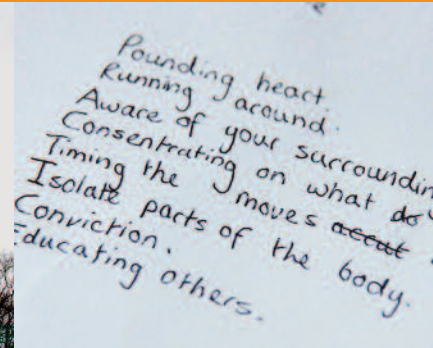 Pounding heart.
Running around.
Aware of your surroundin
Consentrating on what do
Timing the moves accut
Isolate parts of the body.
Conviction.
Educating others.